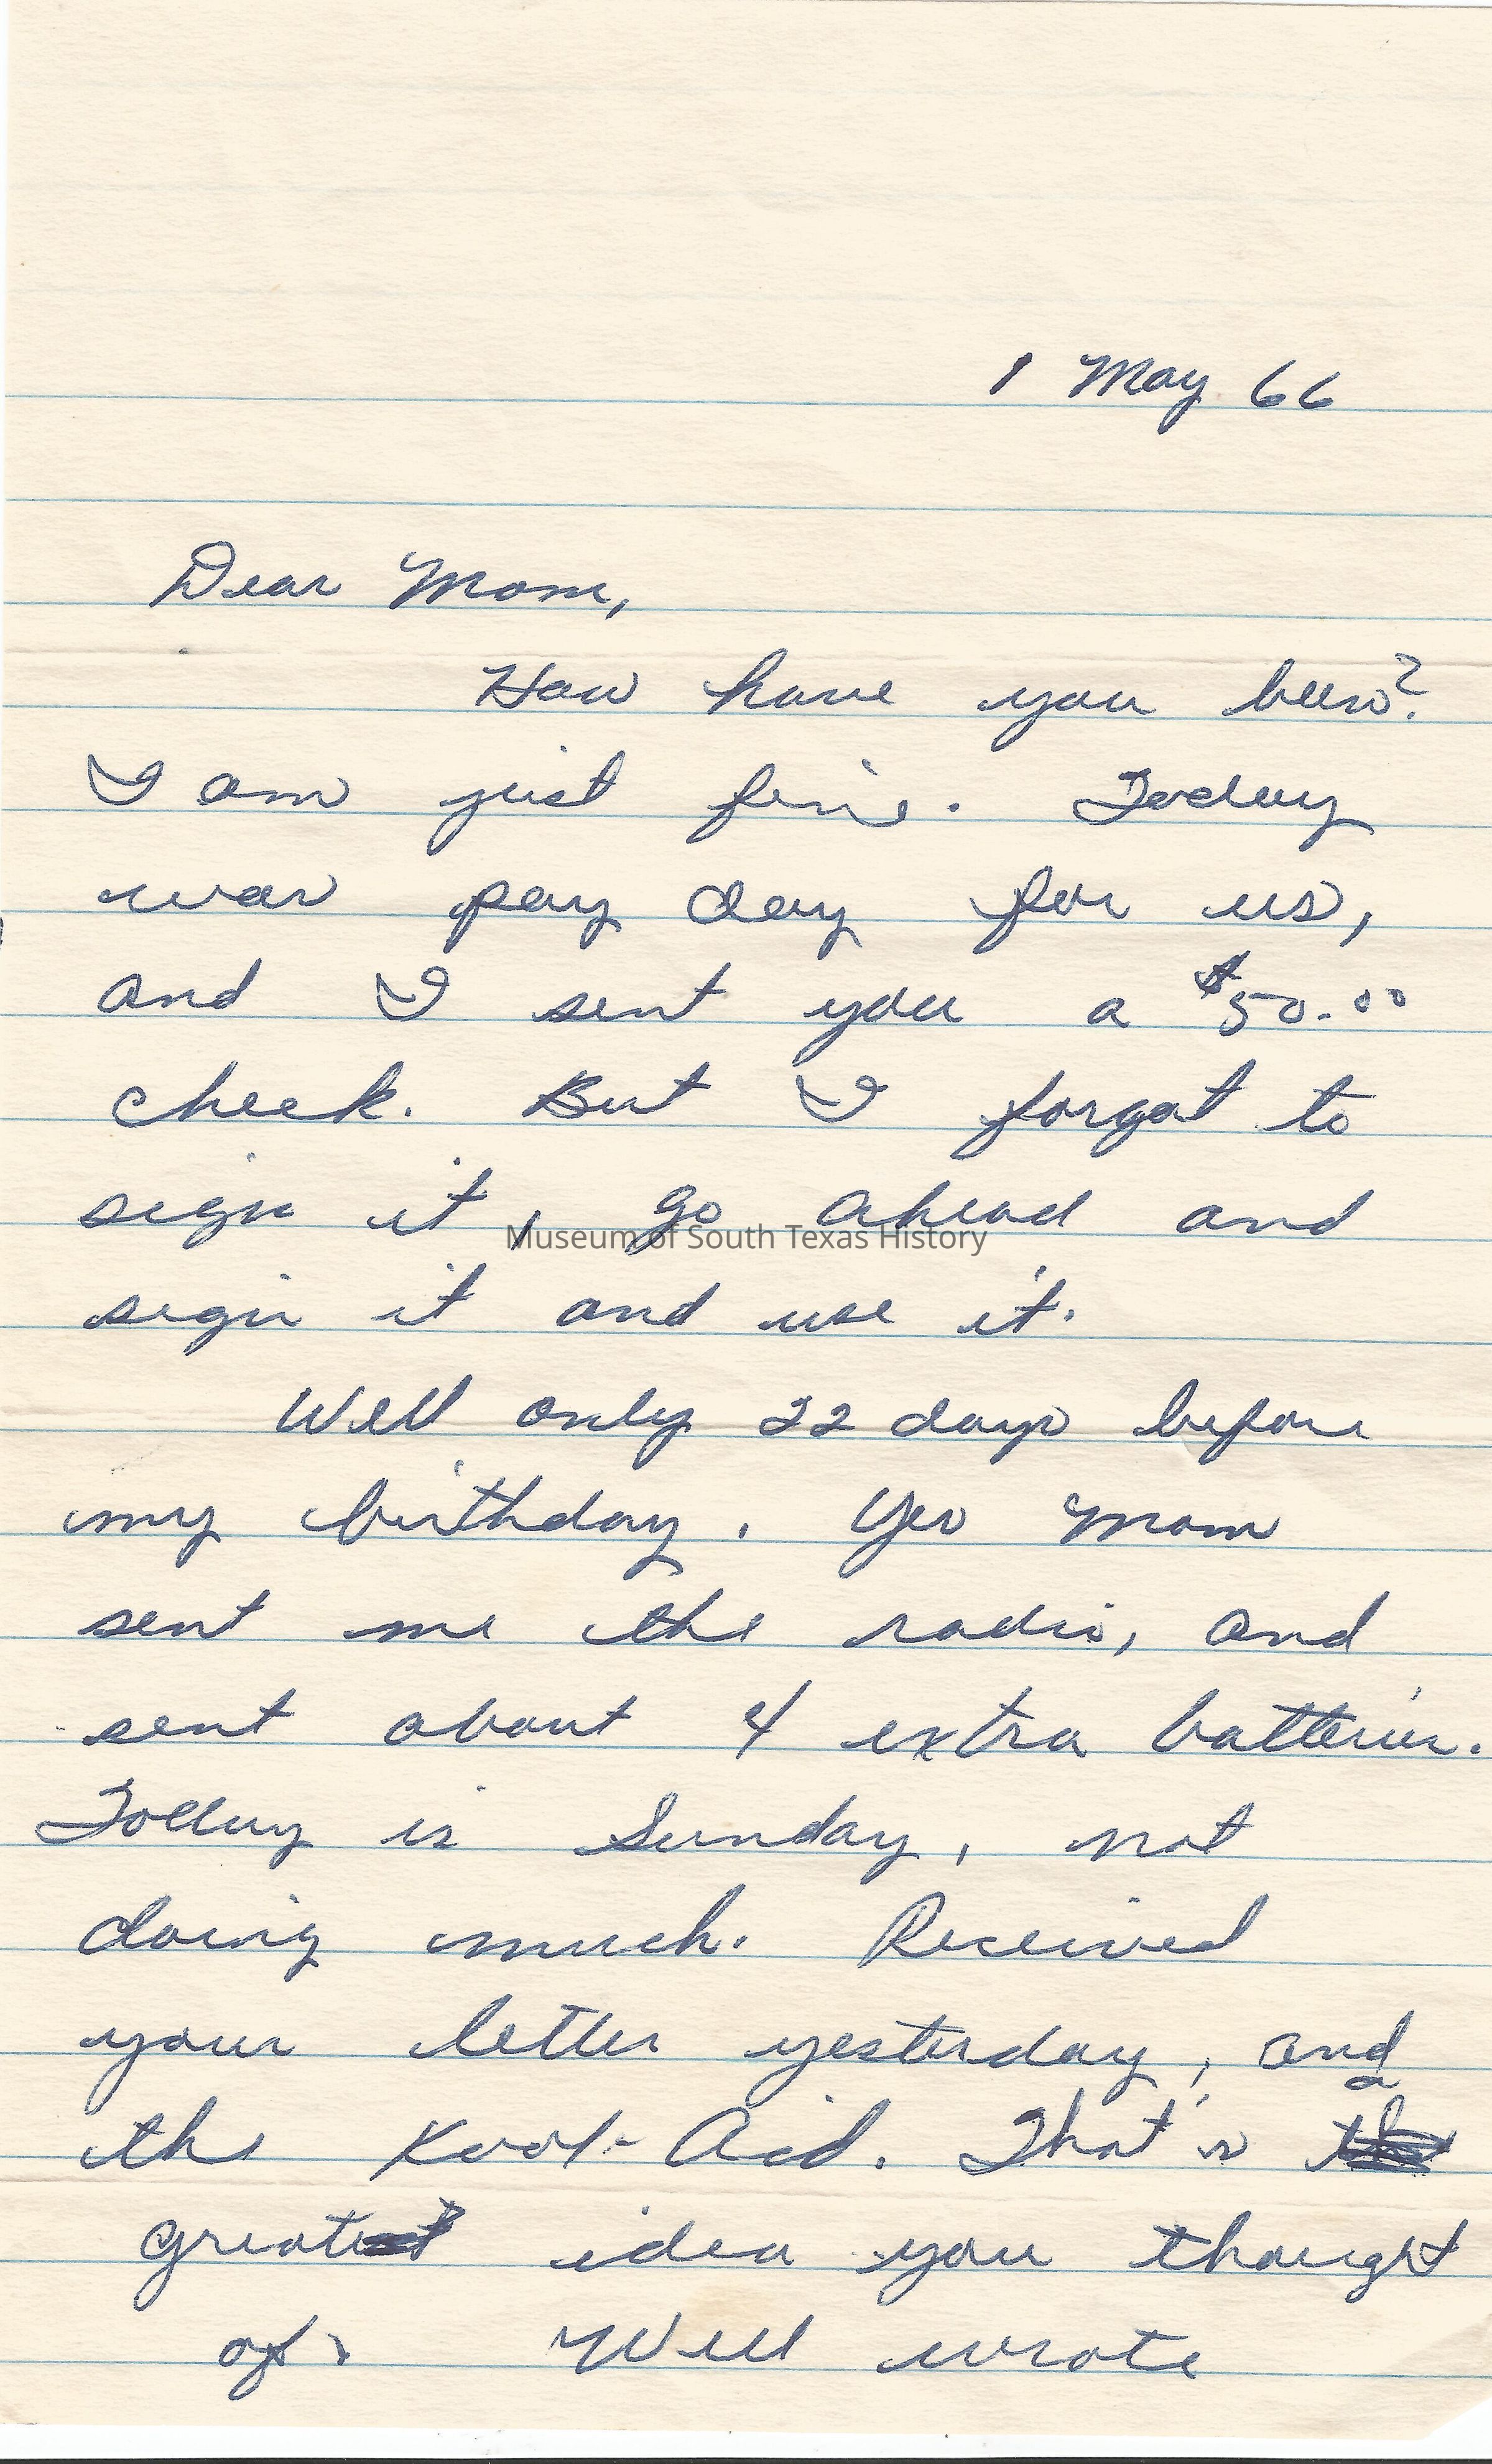 1 May 66
Dear Mom,
How have you been?
I am just fine. Today
was pay day for us,
and I sent you a $50.00
check. But I forgot to
sign it, go ahead and
sign it and use it.
Well only 22 days before
my birthday. Yes Mom
sent me the radio, and
sent about 4 extra batteries.
Today is Sunday, not
doing much. Received
your letter yesterday, and
the Kool-Aid. That's a
great idea you thought
of. Well wrote
Museum of South Texas History